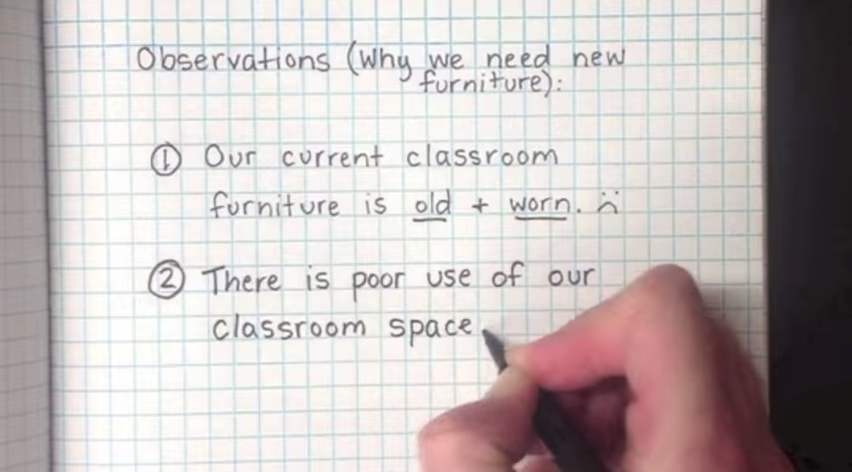 Observations (Why we need new
furniture):
① Our current classroom
furniture is old + worn. :(
② There is poor use of our
classroom space